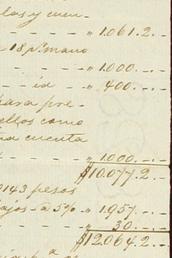 las y cuen-
- - - - " 1.061.2.-
18 ps mano
- - - - " 1.000.-.-
- - id - " 400.-.-
para pre-
ellos como
na cuenta
- - - - " 1.000.-.-
$10.077.2.-
0143 pesos
ajos a 5% " 1.957.-.-
- - - - " 30.-.-
$12.064.2.-